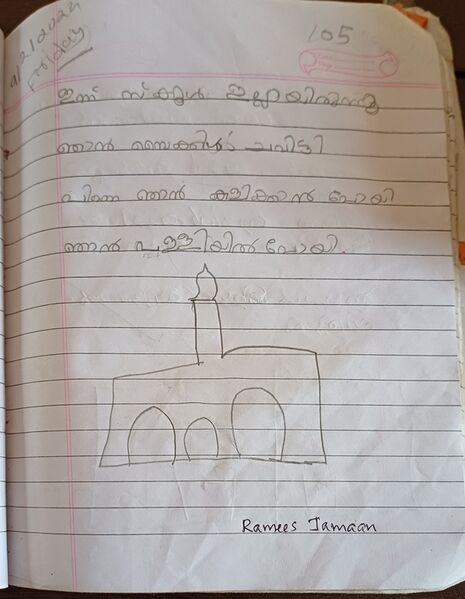 9/2/2024
Friday
105
ഇന്ന് സ്കൂൾ ഇല്ലായിരുന്നു
ഞാൻ സൈക്കിൾ ചവിട്ടി
പിന്നെ ഞാൻ കളിക്കാൻ പോയി
ഞാൻ പള്ളിയിൽ പോയി.
Ramees Jamaan